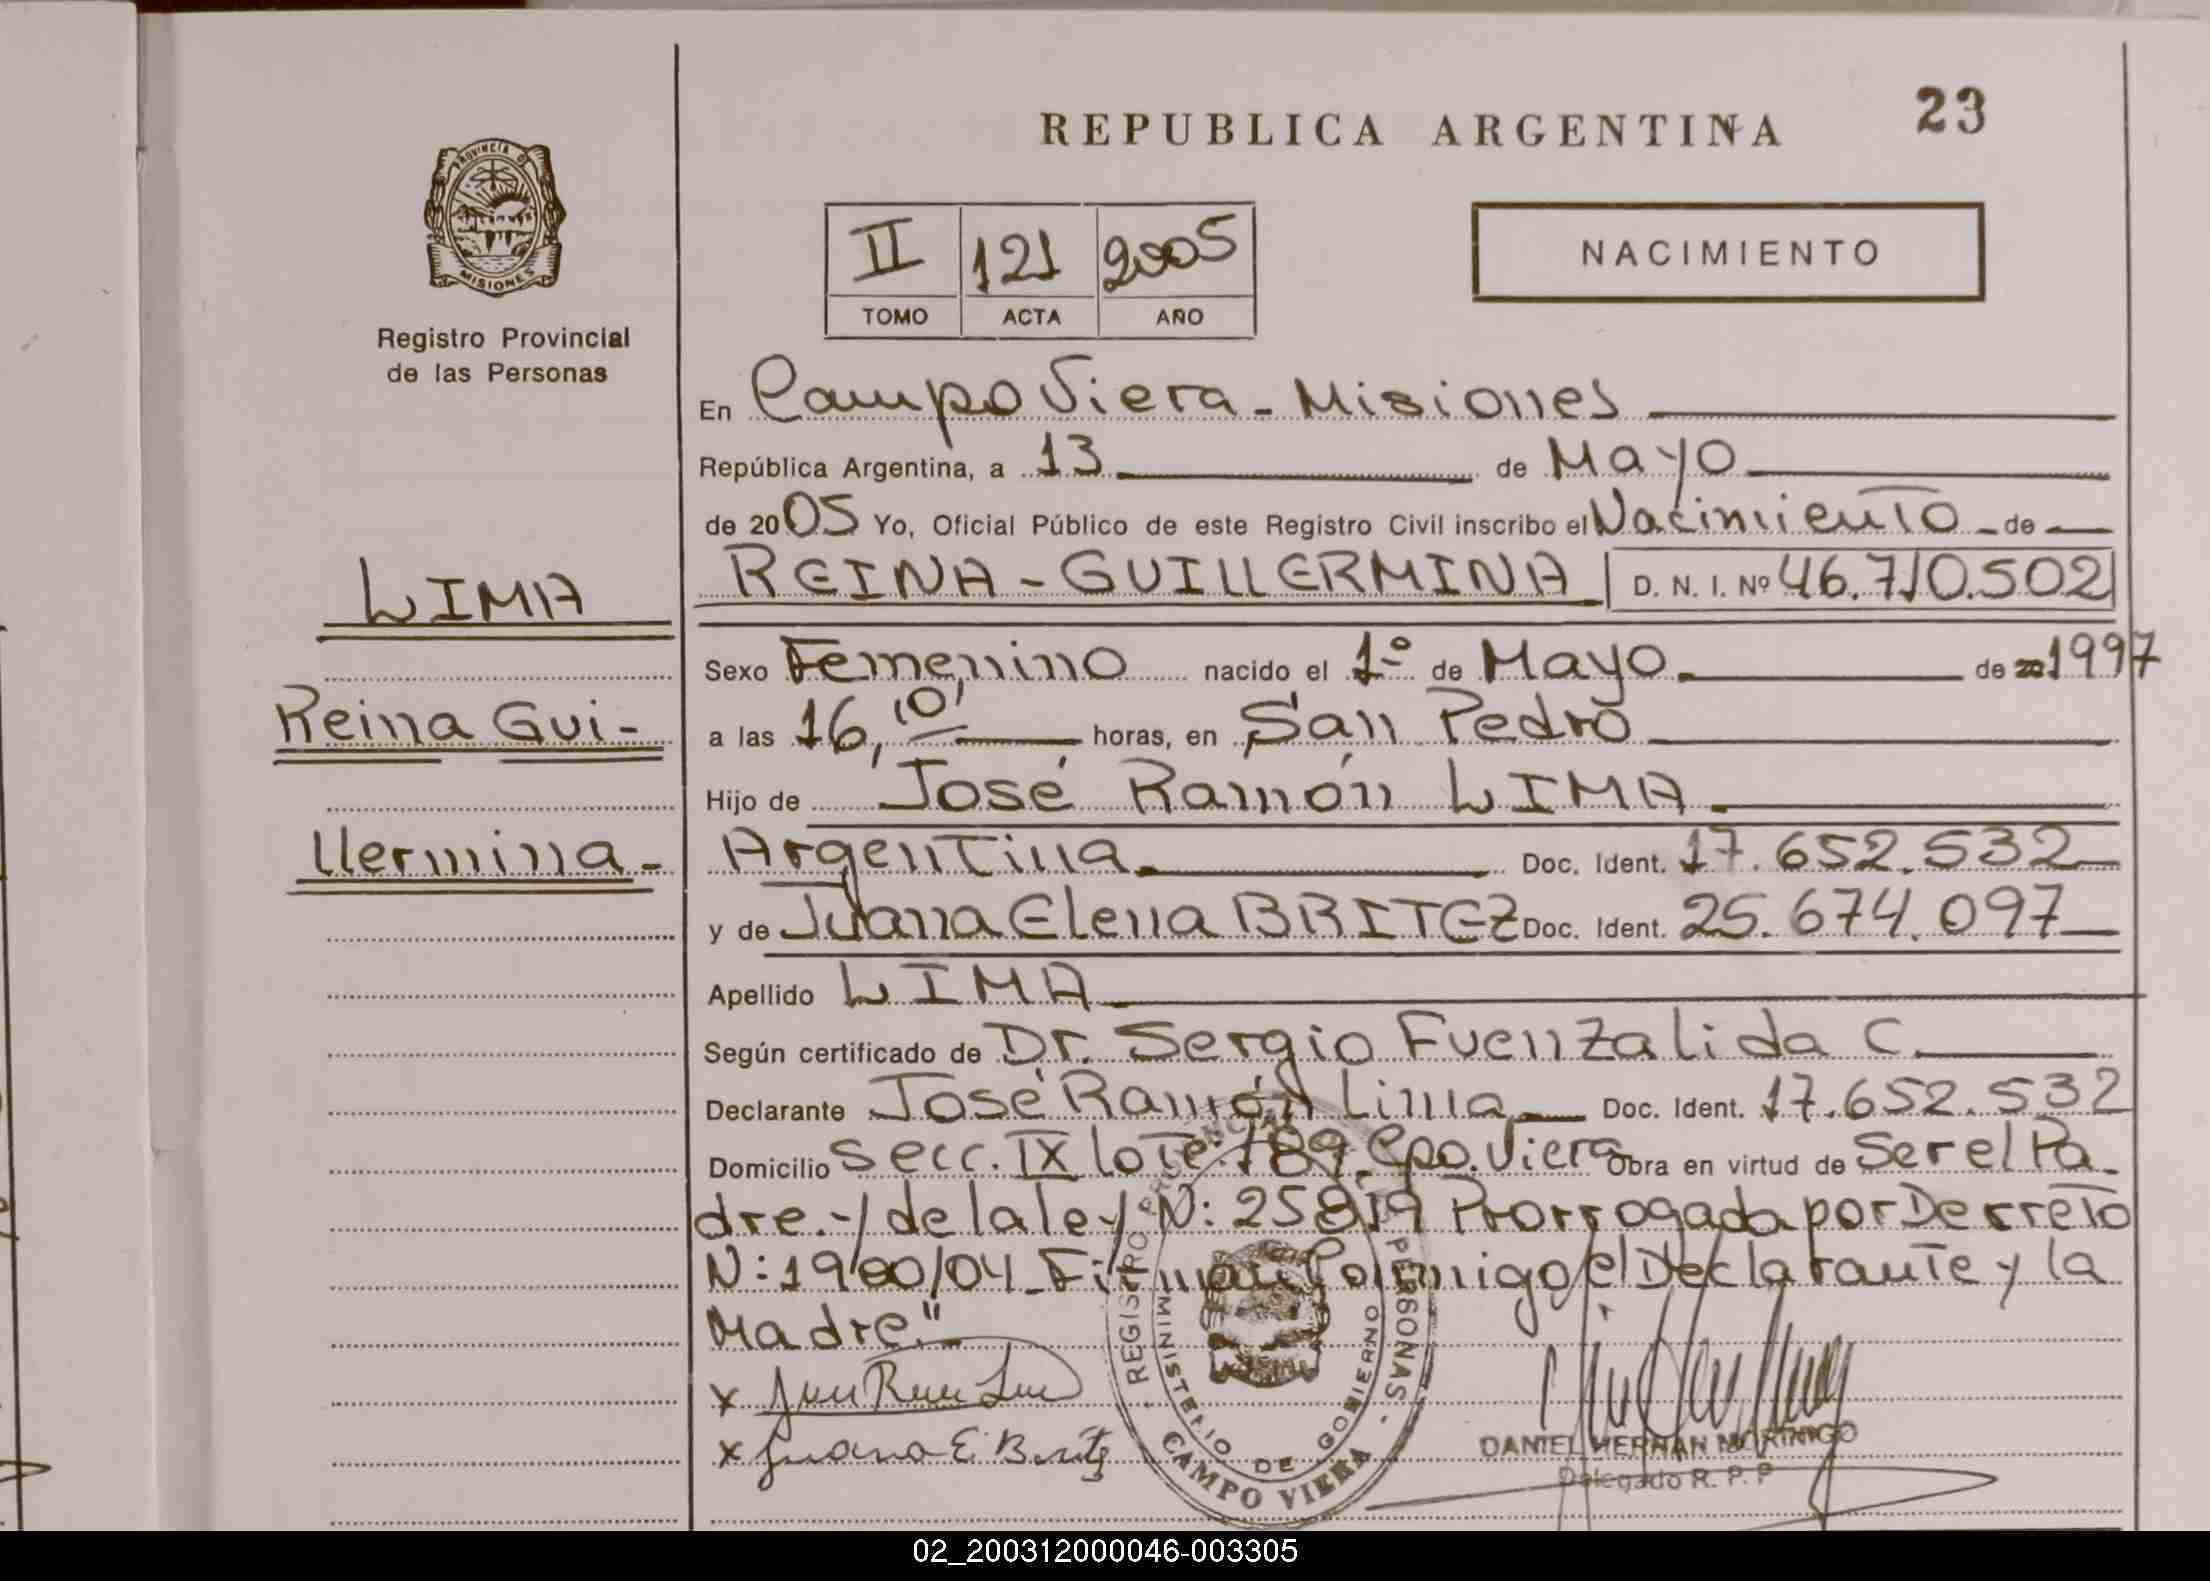 REPUBLICA ARGENTINA 23
PROVINCIA DE MISIONES
Registro Provincial
de las Personas
II 121 2005
TOMO ACTA AÑO
NACIMIENTO
En Campo Viera - Misiones
República Argentina, a 13 de Mayo
de 2005 Yo, Oficial Público de este Registro Civil inscribo el Nacimiento - de
LIMA
REINA - GUILLERMINA D. N. I. Nº 46.710.502
Sexo Femenino nacido el 1º de Mayo de 1997
Reina Gui-
a las 16,10' horas, en San Pedro
Hijo de José Ramón LIMA
llermina-
Argentina Doc. Ident. 17.652.532
y de Juana Elena BRITEZ Doc. Ident. 25.674.097
Apellido LIMA
Según certificado de Dr. Sergio Fuenzalida C.
Declarante José Ramón Lima Doc. Ident. 17.652.532
Domicilio Secc. IX lote: 189. Cpo. Viera Obra en virtud de Ser el Pa-
dre.-/ de la ley N: 25819 Prorrogada por Decreto
N: 1900/04. Firman Conmigo el Declarante y la
Madre."
x
x Juana E. Britez
REGISTRO PROVINCIAL PERSONAS
MINISTERIO DE GOBIERNO
CAMPO VIERA
DANIEL HERNAN MORINIGO
Delegado R. P. P
02_200312000046-003305